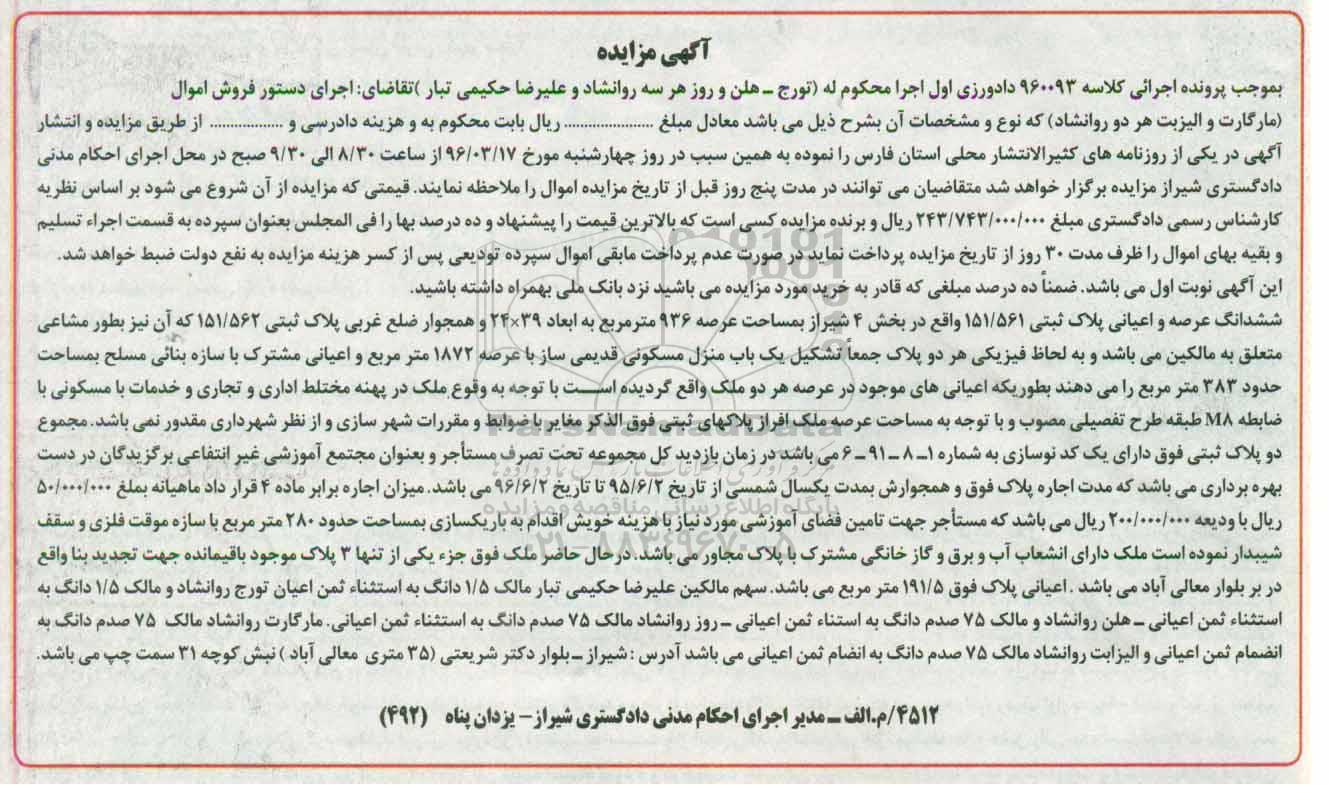 آگهی مزایده
بموجب پرونده اجرائی کلاسه ۹۶۰۰۹۳ دادورزی اول اجرا محکوم له (تورج ـ هلن و روز هر سه روانشاد و علیرضا حکیمی تبار )تقاضای: اجرای دستور فروش اموال
(مارگارت و الیزبت هر دو روانشاد) که نوع و مشخصات آن بشرح ذیل می باشد معادل مبلغ .................... ریال بابت محکوم به و هزینه دادرسی و ................. از طریق مزایده و انتشار
آگهی در یکی از روزنامه های کثیرالانتشار محلی استان فارس را نموده به همین سبب در روز چهارشنبه مورخ ۹۶/۰۳/۱۷ از ساعت ۸/۳۰ الی ۹/۳۰ صبح در محل اجرای احکام مدنی
دادگستری شیراز مزایده برگزار خواهد شد متقاضیان می توانند در مدت پنج روز قبل از تاریخ مزایده اموال را ملاحظه نمایند. قیمتی که مزایده از آن شروع می شود بر اساس نظریه
کارشناس رسمی دادگستری مبلغ ۲۴۳/۷۴۳/۰۰۰/۰۰۰ ریال و برنده مزایده کسی است که بالاترین قیمت را پیشنهاد و ده درصد بها را فی المجلس بعنوان سپرده به قسمت اجراء تسلیم
و بقیه بهای اموال را ظرف مدت ۳۰ روز از تاریخ مزایده پرداخت نماید در صورت عدم پرداخت مابقی اموال سپرده تودیعی پس از کسر هزینه مزایده به نفع دولت ضبط خواهد شد.
این آگهی نوبت اول می باشد. ضمناً ده درصد مبلغی که قادر به خرید مورد مزایده می باشید نزد بانک ملی بهمراه داشته باشید.
ششدانگ عرصه و اعیانی پلاک ثبتی ۱۵۱/۵۶۱ واقع در بخش ۴ شیراز بمساحت عرصه ۹۳۶ مترمربع به ابعاد ۳۹×۲۴ و همجوار ضلع غربی پلاک ثبتی ۱۵۱/۵۶۲ که آن نیز بطور مشاعی
متعلق به مالکین می باشد و به لحاظ فیزیکی هر دو پلاک جمعاً تشکیل یک باب منزل مسکونی قدیمی ساز با عرصه ۱۸۷۲ متر مربع و اعیانی مشترک با سازه بنائی مسلح بمساحت
حدود ۳۸۳ متر مربع را می دهند بطوریکه اعیانی های موجود در عرصه هر دو ملک واقع گردیده است با توجه به وقوع ملک در پهنه مختلط اداری و تجاری و خدمات با مسکونی با
ضابطه M۸ طبقه طرح تفصیلی مصوب و با توجه به مساحت عرصه ملک افراز پلاکهای ثبتی فوق الذکر مغایر با ضوابط و مقررات شهر سازی و از نظر شهرداری مقدور نمی باشد. مجموع
دو پلاک ثبتی فوق دارای یک کد نوسازی به شماره ۱ـ ۸ ـ ۹۱ ـ ۶ می باشد در زمان بازدید کل مجموعه تحت تصرف مستأجر و بعنوان مجتمع آموزشی غیر انتفاعی برگزیدگان در دست
بهره برداری می باشد که مدت اجاره پلاک فوق و همجوارش بمدت یکسال شمسی از تاریخ ۹۵/۶/۲ تا تاریخ ۹۶/۶/۲ می باشد. میزان اجاره برابر ماده ۴ قرار داد ماهیانه بمبلغ ۵۰/۰۰۰/۰۰۰
ریال با ودیعه ۲۰۰/۰۰۰/۰۰۰ ریال می باشد که مستأجر جهت تامین فضای آموزشی مورد نیاز با هزینه خویش اقدام به باریکسازی بمساحت حدود ۲۸۰ متر مربع با سازه موقت فلزی و سقف
شیبدار نموده است ملک دارای انشعاب آب و برق و گاز خانگی مشترک با پلاک مجاور می باشد. در حال حاضر ملک فوق جزء یکی از تنها ۳ پلاک موجود باقیمانده جهت تجدید بنا واقع
در بر بلوار معالی آباد می باشد . اعیانی پلاک فوق ۱۹۱/۵ متر مربع می باشد. سهم مالکین علیرضا حکیمی تبار مالک ۱/۵ دانگ به استثناء ثمن اعیان تورج روانشاد و مالک ۱/۵ دانگ به
استثناء ثمن اعیانی ـ هلن روانشاد و مالک ۷۵ صدم دانگ به استناء ثمن اعیانی ـ روز روانشاد مالک ۷۵ صدم دانگ به استثناء ثمن اعیانی. مارگارت روانشاد مالک ۷۵ صدم دانگ به
انضمام ثمن اعیانی و الیزابت روانشاد مالک ۷۵ صدم دانگ به انضام ثمن اعیانی می باشد آدرس : شیراز ـ بلوار دکتر شریعتی (۳۵ متری معالی آباد ) نبش کوچه ۳۱ سمت چپ می باشد.
۴۵۱۲/م.الف ـ مدیر اجرای احکام مدنی دادگستری شیراز- یزدان پناه (۴۹۲)
ParsNamadData
پایگاه اطلاع رسانی مناقصه و مزایده